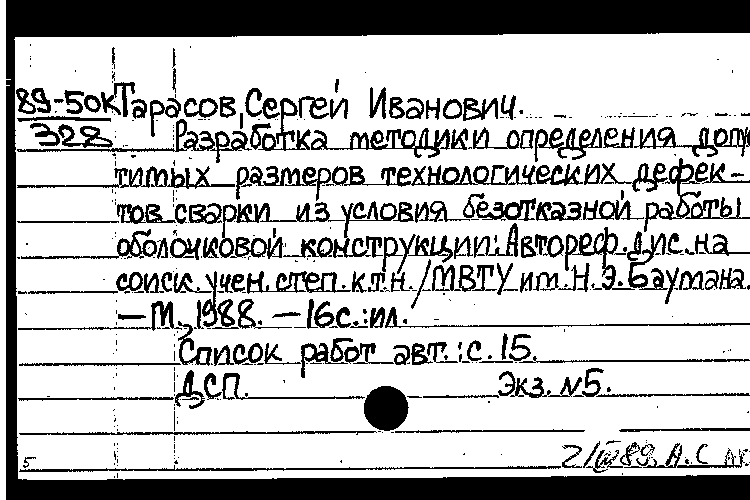 89-50к Тарасов, Сергей Иванович.
328 Разработка методики определения допу
тимых размеров технологических дефек-
тов сварки из условия безотказной работы
оболочковой конструкции: Автореф. дис. на
соиск. учен. степ. к.т.н. / МВТУ им. Н.Э. Баумана.
— М., 1988. — 16с.: ил.
Список работ авт.: с. 15.
ДСП. Экз. №5.
89. А.С
5